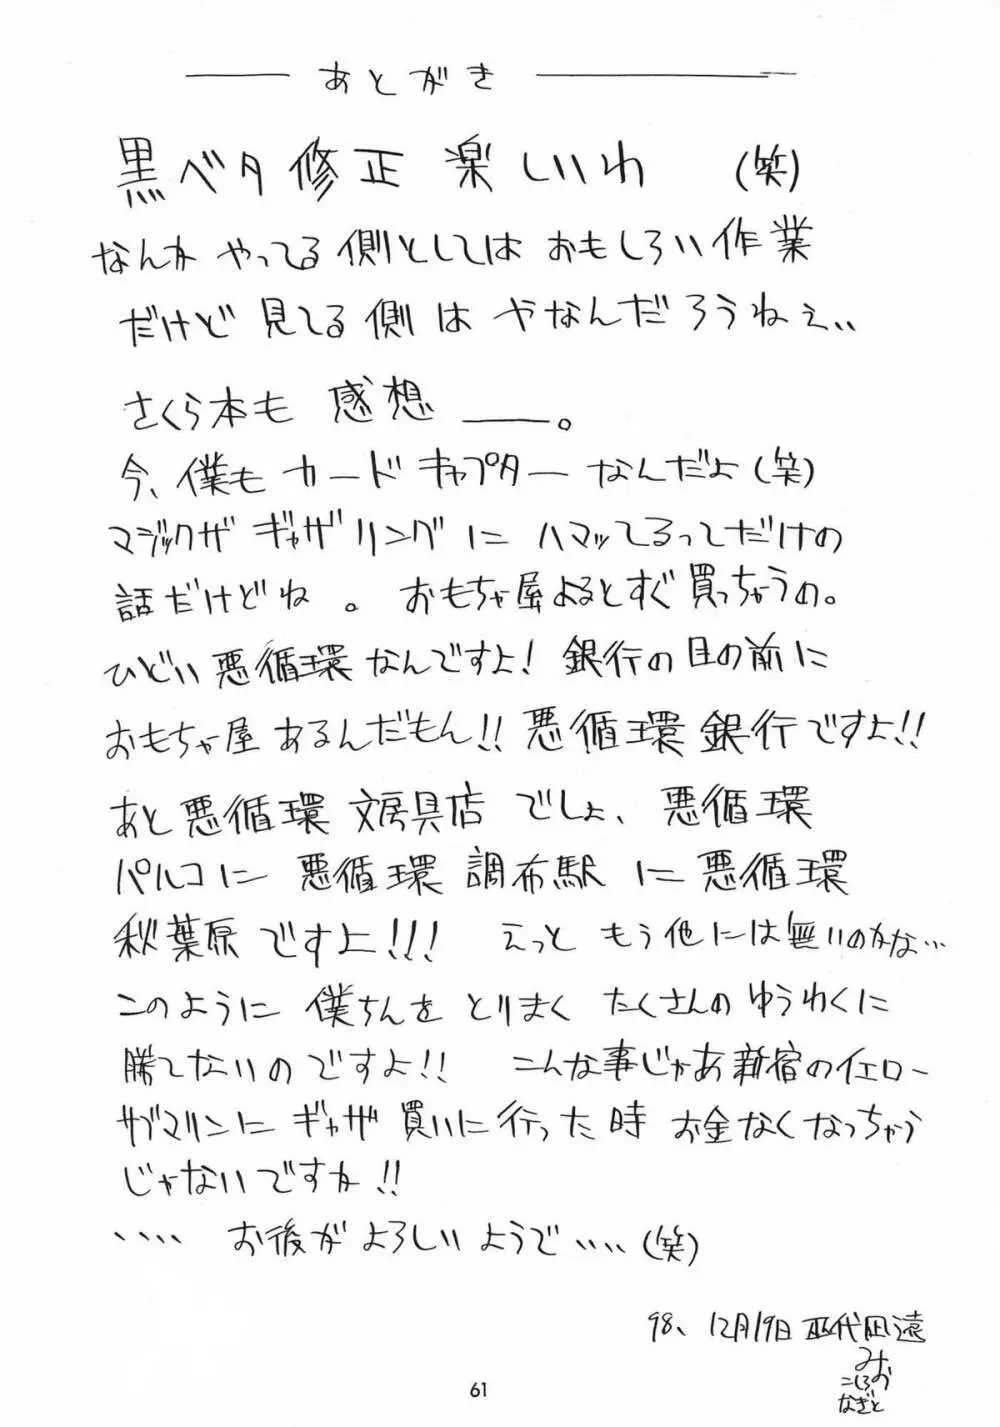 あとがき
黒ベタ修正 楽しいわ (笑)
なんか やってる側としては おもしろい作業
だけど 見てる側は やなんだろうねぇ、、
さくら本も 感想 ――。
今、僕も カードキャプター なんだよ(笑)
マジックザ ギャザリングに ハマッてるってだけの
話だけどね 。 おもちゃ屋よるとすぐ買っちゃうの。
ひどい悪循環なんですよ! 銀行の目の前に
おもちゃ屋 あるんだもん!! 悪循環銀行ですよ!!
あと悪循環 文房具店 でしょ、悪循環
パルコに 悪循環 調布駅 に 悪循環
秋葉原 ですよ!!! えっと もう他には無いのかな…
このように 僕ちんを とりまく たくさんの ゆうわくに
勝てないの ですよ!! こんな事じゃあ新宿のイエロー
サブマリンに ギャザ 買いに行った時 お金なくなっちゃう
じゃないですか!!
、、、、 お後が よろしい ようで、、、、(笑)
98、12月19日 巫代凪遠
みお
こしろ
なぎと
61